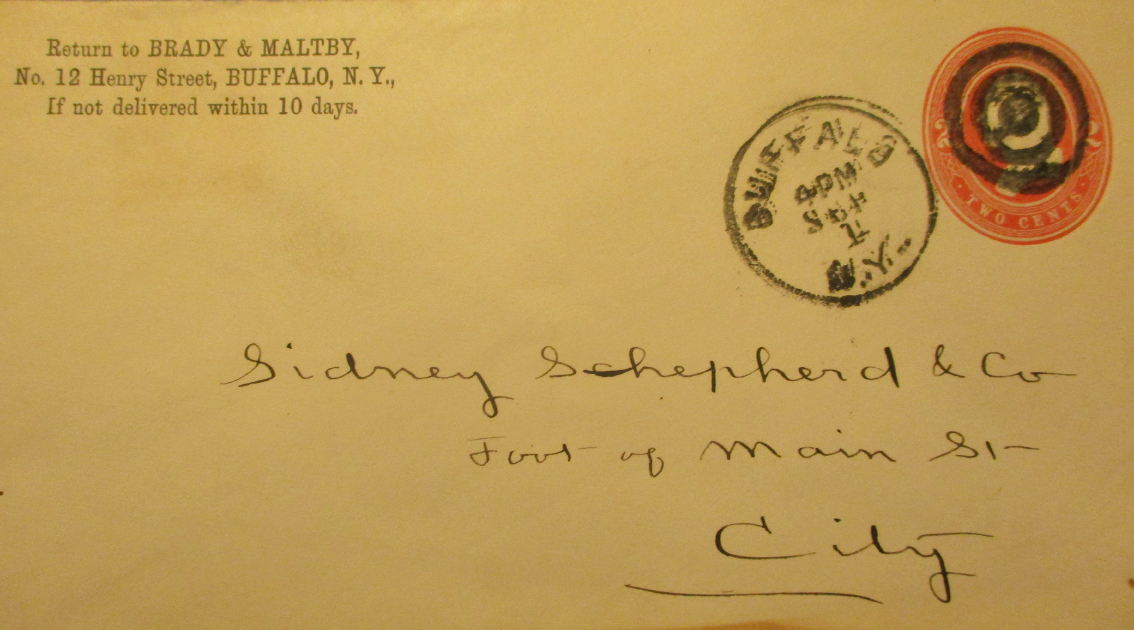 Return to BRADY & MALTBY,
No. 12 Henry Street, BUFFALO, N. Y.,
If not delivered within 10 days.
BUFFALO
4 PM
SEP
N.Y.
2 2
TWO CENTS
Sidney Schepherd & Co
Foot of Main St
City